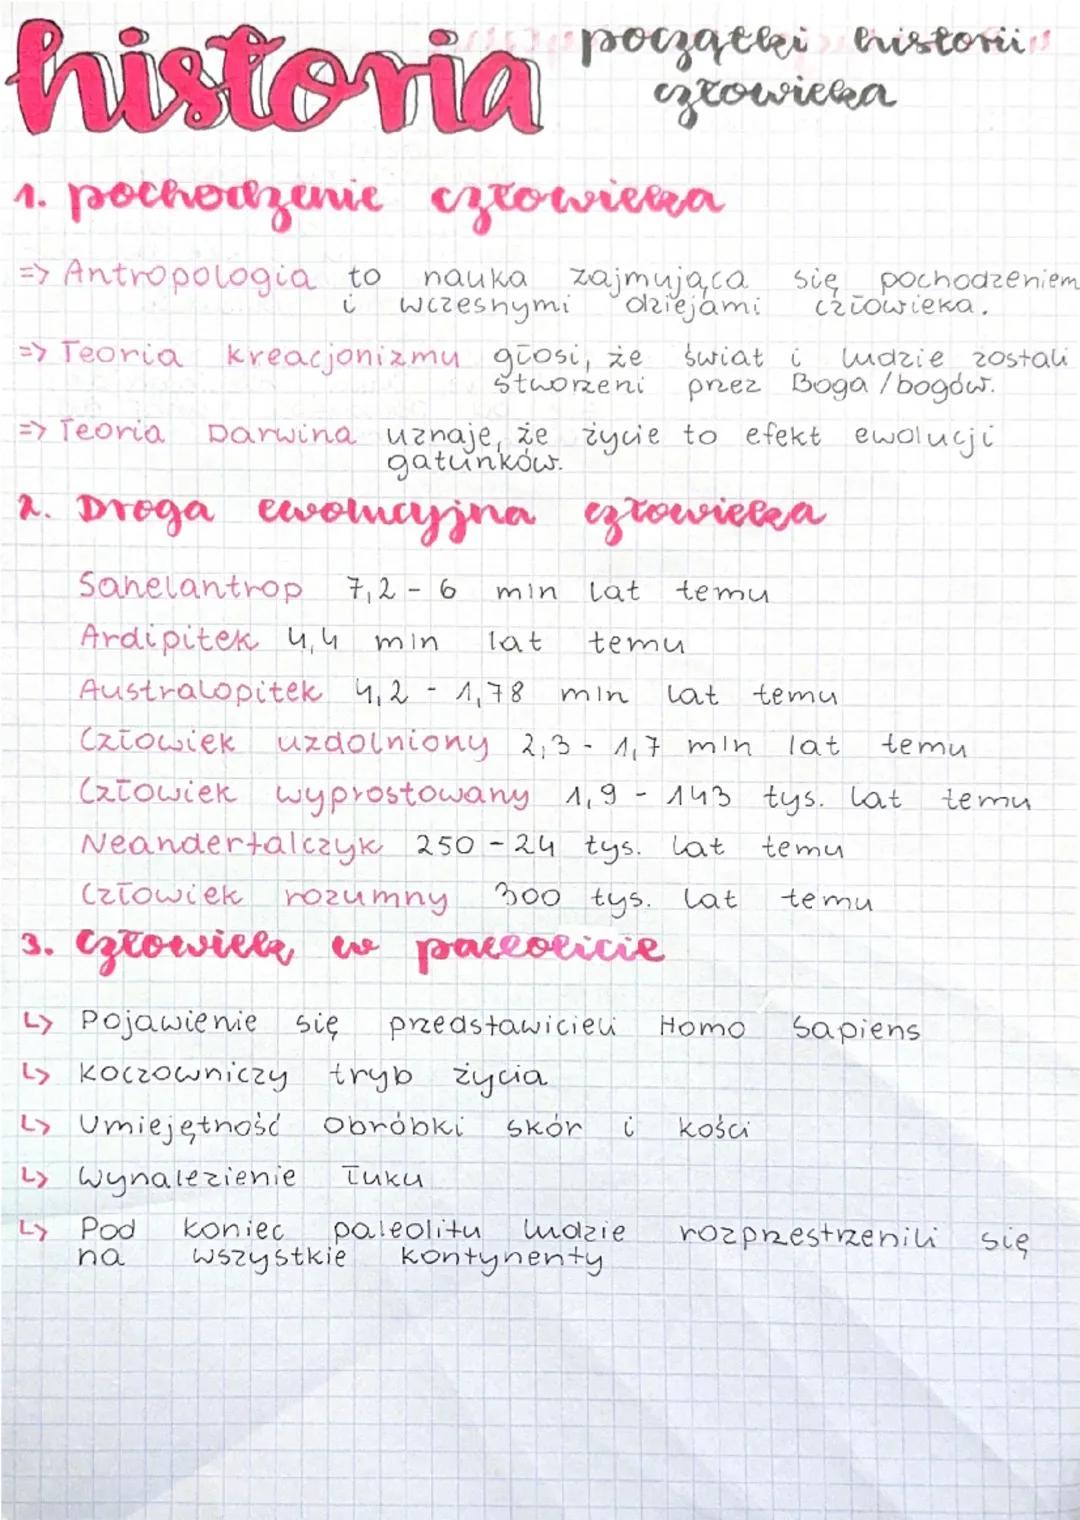 historia
początki historii
człowieka
1. pochodzenie człowieka
=> Antropologia to nauka zajmująca się pochodzeniem
i wczesnymi dziejami człowieka.
=> Teoria kreacjonizmu głosi, że świat i ludzie zostali
stworzeni przez Boga/bogów.
=> Teoria Darwina uznaje, że życie to efekt ewolucji
gatunków.
2. Droga ewolucyjna człowieka
Sahelantrop 7,2 - 6 mln lat temu
Ardipitek 4,4 mln lat temu
Australopitek 4,2 - 1,78 mln lat temu
Człowiek uzdolniony 2,3 - 1,7 mln lat temu
Człowiek wyprostowany 1,9 - 143 tys. lat temu
Neandertalczyk 250 - 24 tys. lat temu
Człowiek rozumny 300 tys. lat temu
3. Człowiek w paleolicie
↳ Pojawienie się przedstawicieli Homo Sapiens
↳ Koczowniczy tryb życia
↳ Umiejętność obróbki skór i kości
↳ Wynalezienie łuku
↳ Pod koniec paleolitu ludzie rozprzestrzenili się
na wszystkie kontynenty